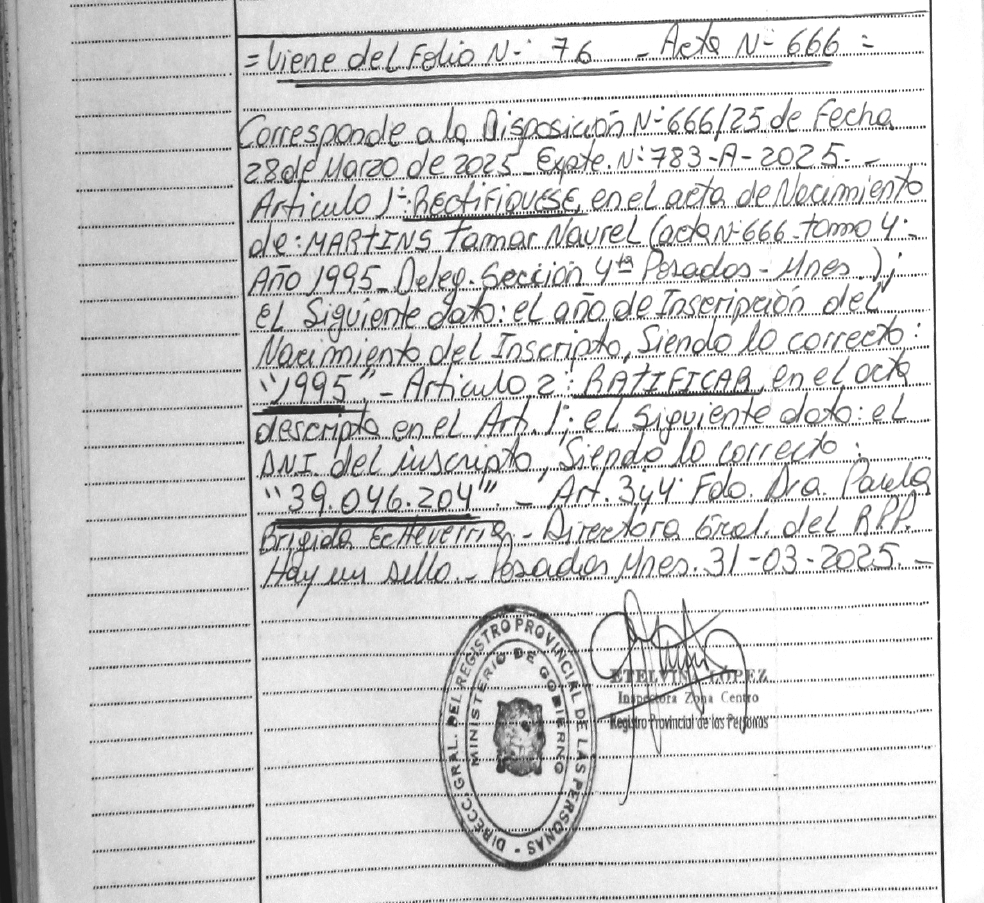 = Viene del Folio N-: 76 - Acta N- 666 =
Corresponde a la Disposición N-: 666/25 de Fecha
28 de Marzo de 2025_ Expte. N: 783-A-2025.-
Artículo 1-: RectiFiquese, en el acta de Nacimiento
de: MARTINS Tamar Naurel (acta N-666-tomo 4-
Año 1995_ Deleg. Sección 4ta Posadas - Mnes.);
el Siguiente dato: el año de Inscripción del
Nacimiento del Inscripto, Siendo lo correcto:
"1995",- Artículo 2: RATIFICAR, en el acta
descripto en el Art. 1-: el siguiente dato: el
DNI. del inscripto, Siendo lo correcto:
"39.046.204". - Art. 3 y 4: Fdo. Dra. Paula
Brigida Echeverria - Directora Gral. del RPP.
Hay un sello._ Posadas Mnes. 31-03-2025._
DIRECC. GRAL. DEL REGISTRO PROVINCIAL DE LAS PERSONAS -
MINISTERIO DE GOBIERNO
ETELVINA LOPEZ
Inspectora Zona Centro
Registro Provincial de las Personas